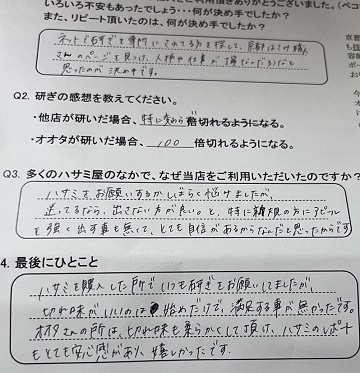 いろいろ不安もあったでしょう・・何が決め手でしたか？
また、リピート頂いたのは、何が決め手でしたか？
ネットで
思ったのが決め手です。
Q2. 研ぎの感想を教えてください。
・他店が研いだ場合、特に変わらず倍切れるようになる。
・オオタが研いだ場合、100 倍切れるようになる。
Q3. 多くのハサミ屋のなかで、なぜ当店をご利用いただいたのですか？
ハサミをお願いするかしばらく悩みましたが、
迷ってるなら、出さない方が良い。と、特に新規の方にアピール
を強く出す事も無くて、とても自信があるからなんだと思ったからです
4. 最後にひとこと
ハサミを購入した所でいつも研ぎをお願いしてましたが、
切れ味がいいのは始めだけで、満足する事が無かったです。
オオタさんの所は、切れ味も柔らかくして頂け、ハサミのレポート
もとても安心感があり、嬉しかったです。